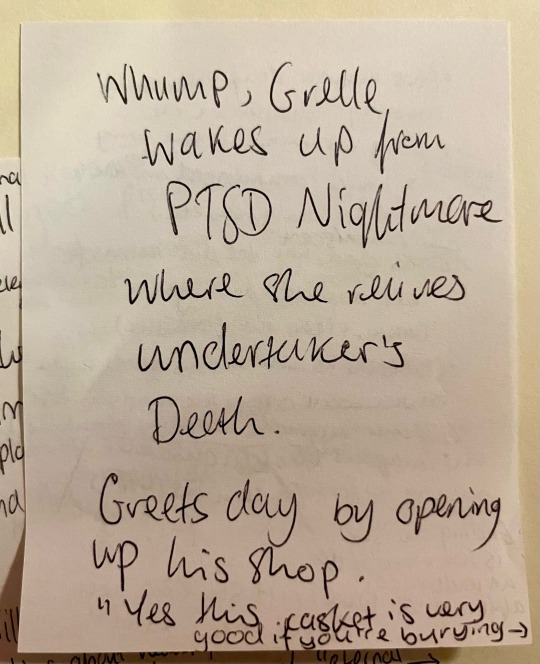 Whump, Grelle
wakes up from
PTSD Nightmare
where she relives
undertaker's
Death.
Greets day by opening
up his shop.
"Yes this casket is very
good if you're burying →